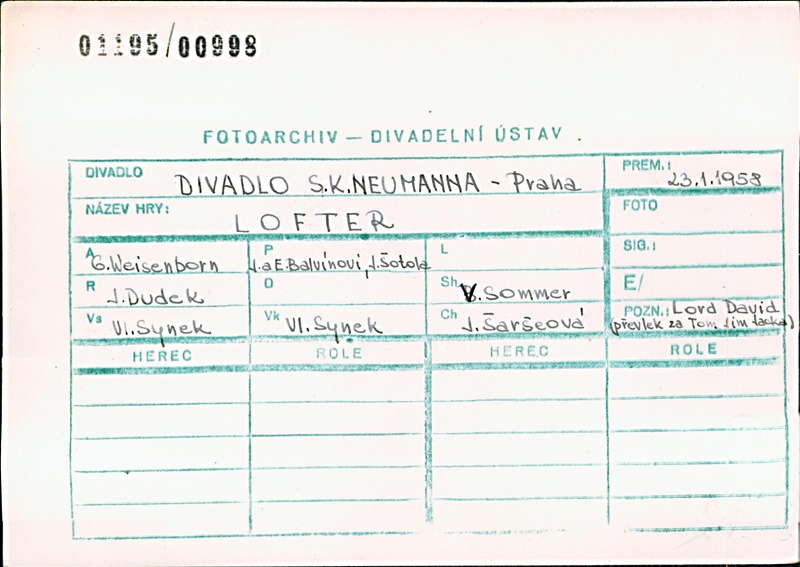 01195/00998
FOTOARCHIV — DIVADELNÍ ÚSTAV .
DIVADLO DIVADLO S.K.NEUMANNA - Praha
PREM.: 23.1.1958
NÁZEV HRY: LOFTER
FOTO
SIG.:
A G.Weisenborn
P J.a E.Balvínovi, J.Šotola
L
R J.Dudek
O
Sh B.Sommer
E/
Vs Vl.Synek
Vk Vl.Synek
Ch J.Šaršeová
POZN.: Lord David
(převlek za Tom. Jim
HEREC ROLE HEREC ROLE